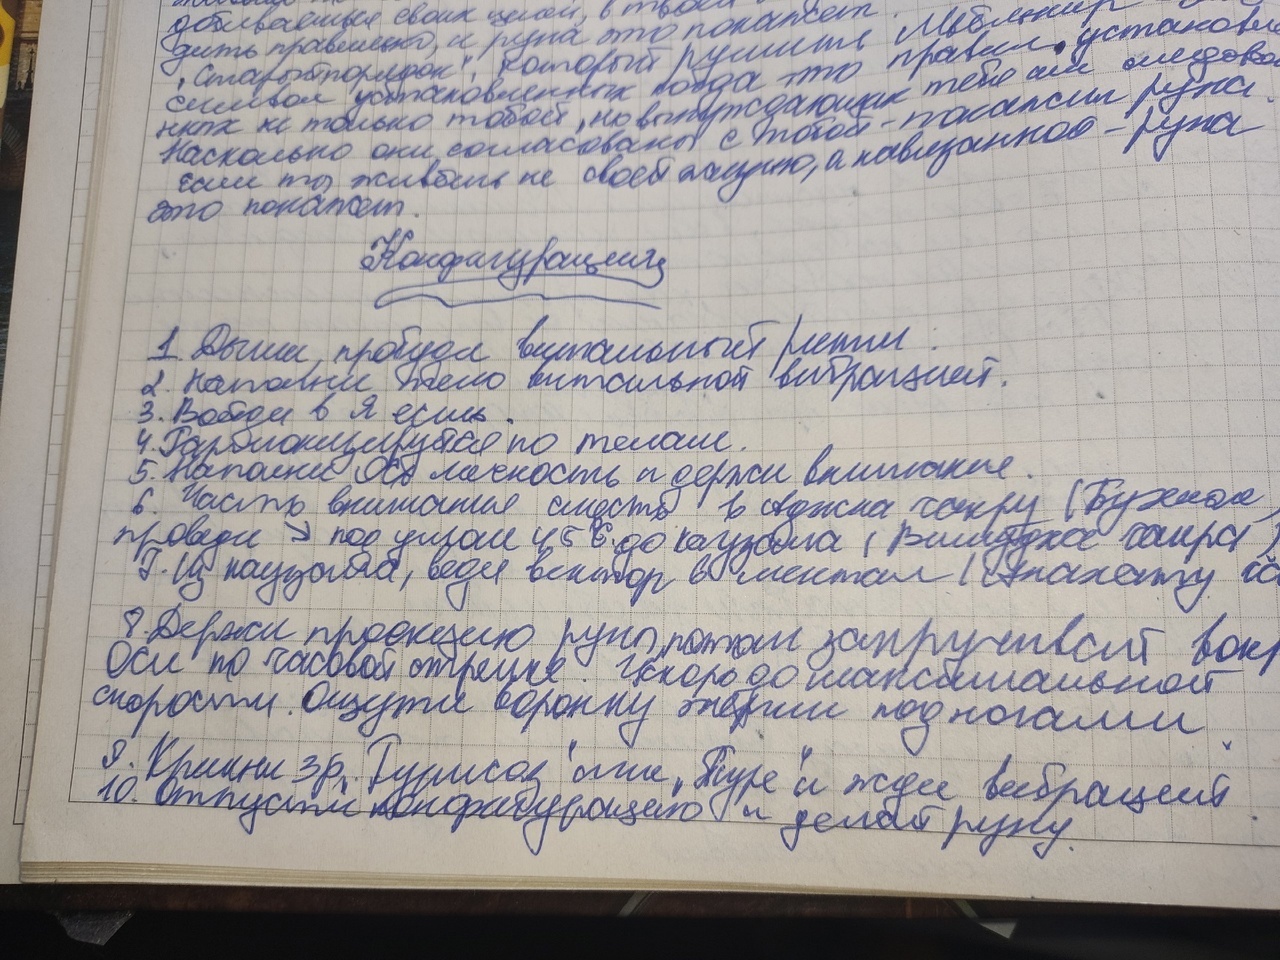 добиваешься своих целей, в твоей
дить правильно, и руна это покажет.
"Старый порядок", который рушить Мьёльнир
символ установленных когда то правил, установлен
ных не только тобой, но вынуждающих тебе им следова
Насколько они согласованы с тобой - показыл руна.
Если ты живёшь не своей жизнью, а навязанной - руна
это покажет.
Конфигурация
1. Дыши, пробуди витальный ритм.
2. Наполни тело витальной вибрацией.
3. Войди в Я есмь.
4. Гармонизируйся по телам.
5. Наполни Ось личность и держи внимание.
6. Часть внимания смести в аджна чакру (Буххал
проведи ↘ под углом 45°С. до каузала (Вишудха чакра)
7. Из каузала, веди вектор в ментал (Анахату ча
8. Держи проекцию руны, потом закручивай вокр
Оси по часовой стрелке. Ускор до максимальной
скорости. Ощути воронку энергии под ногами.
9. Крикни 3 р. "Турисаз" или "Туре" и жди вибраций
10. Отпусти конфигурацию и делай руну.